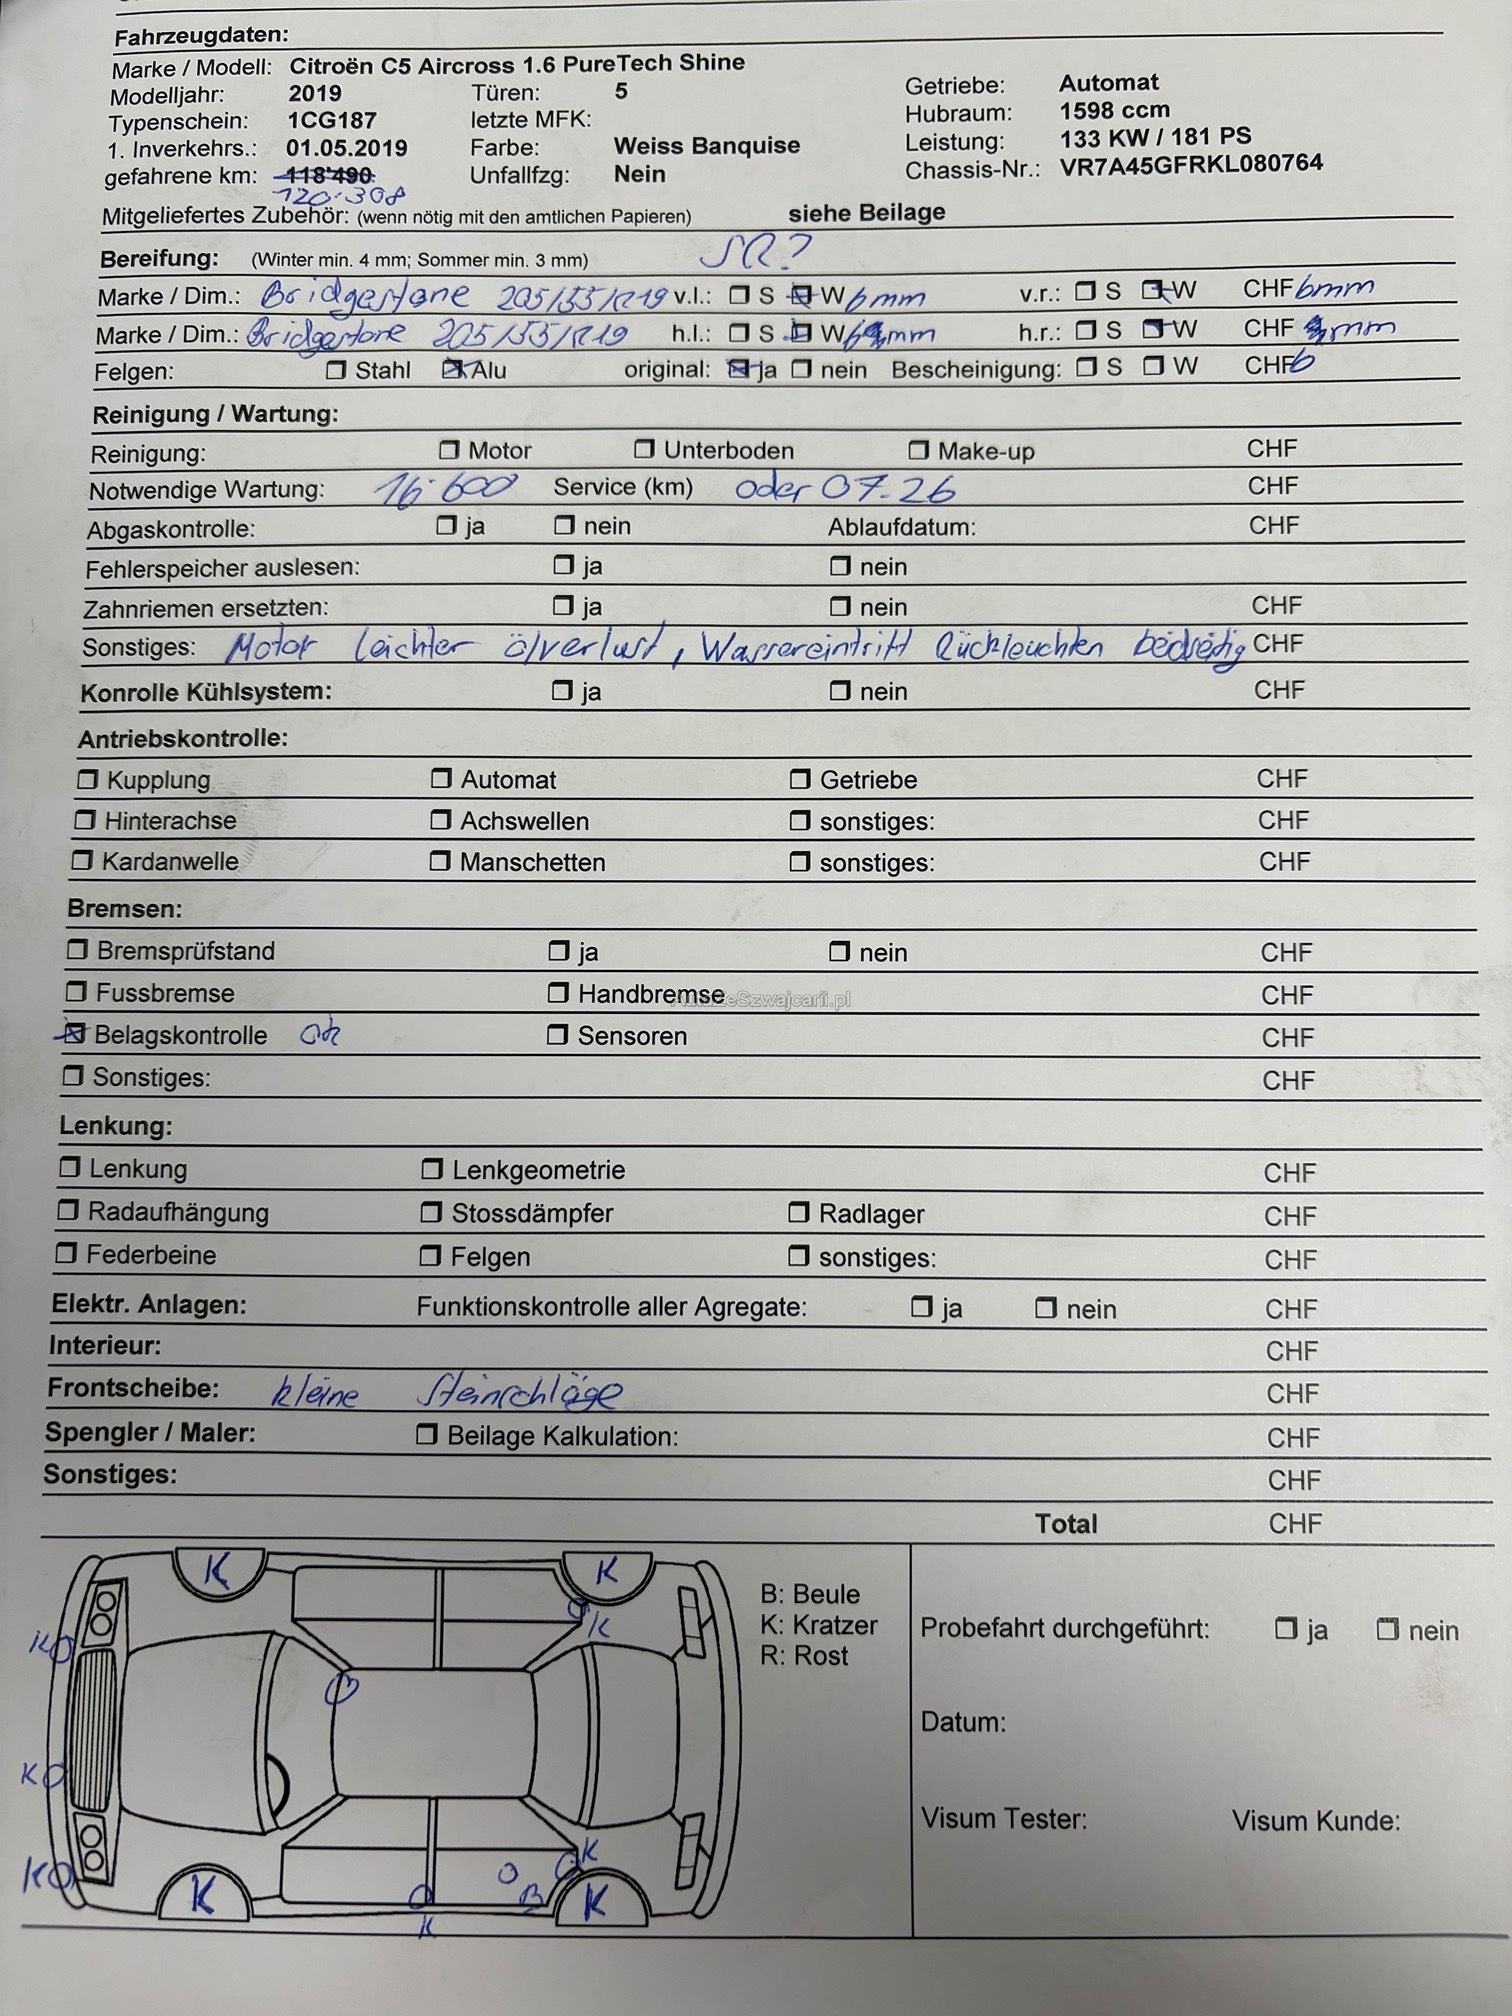 Fahrzeugdaten:
Marke / Modell: Citroën C5 Aircross 1.6 PureTech Shine
Modelljahr: 2019 Türen: 5 Getriebe: Automat
Typenschein: 1CG187 letzte MFK: Hubraum: 1598 ccm
1. Inverkehrs.: 01.05.2019 Farbe: Weiss Banquise Leistung: 133 KW / 181 PS
gefahrene km: 118'490 Unfallfzg: Nein Chassis-Nr.: VR7A45GFRKL080764
120.308
Mitgeliefertes Zubehör: (wenn nötig mit den amtlichen Papieren) siehe Beilage
Bereifung: (Winter min. 4 mm; Sommer min. 3 mm) SR?
Marke / Dim.: Bridgestone 205/55/R19 v.l.: ☐ S ☒ W 6mm v.r.: ☐ S ☒ W CHF 6mm
Marke / Dim.: Bridgestone 205/55/R19 h.l.: ☐ S ☒ W 6 mm h.r.: ☐ S ☒ W CHF mm
Felgen: ☐ Stahl ☒ Alu original: ☒ ja ☐ nein Bescheinigung: ☐ S ☐ W CHF 6
Reinigung / Wartung:
Reinigung: ☐ Motor ☐ Unterboden ☐ Make-up CHF
Notwendige Wartung: 16'600 Service (km) oder 07.26 CHF
Abgaskontrolle: ☐ ja ☐ nein Ablaufdatum: CHF
Fehlerspeicher auslesen: ☐ ja ☐ nein
Zahnriemen ersetzten: ☐ ja ☐ nein CHF
Sonstiges: Motor leichter ölverlust, Wassereintritt Rückleuchten beidseitig CHF
Konrolle Kühlsystem: ☐ ja ☐ nein CHF
Antriebskontrolle:
☐ Kupplung ☐ Automat ☐ Getriebe CHF
☐ Hinterachse ☐ Achswellen ☐ sonstiges: CHF
☐ Kardanwelle ☐ Manschetten ☐ sonstiges: CHF
Bremsen:
☐ Bremsprüfstand ☐ ja ☐ nein CHF
☐ Fussbremse ☐ Handbremse CHF
AutaZeSzwajcarii.pl
☒ Belagskontrolle ok ☐ Sensoren CHF
☐ Sonstiges: CHF
Lenkung:
☐ Lenkung ☐ Lenkgeometrie CHF
☐ Radaufhängung ☐ Stossdämpfer ☐ Radlager CHF
☐ Federbeine ☐ Felgen ☐ sonstiges: CHF
Elektr. Anlagen: Funktionskontrolle aller Agregate: ☐ ja ☐ nein CHF
Interieur: CHF
Frontscheibe: kleine Steinschläge CHF
Spengler / Maler: ☐ Beilage Kalkulation: CHF
Sonstiges: CHF
Total CHF
K K
B: Beule
K: Kratzer
R: Rost
K K
Probefahrt durchgeführt: ☐ ja ☐ nein
Datum:
K
Visum Tester: Visum Kunde:
K K
K B K
K